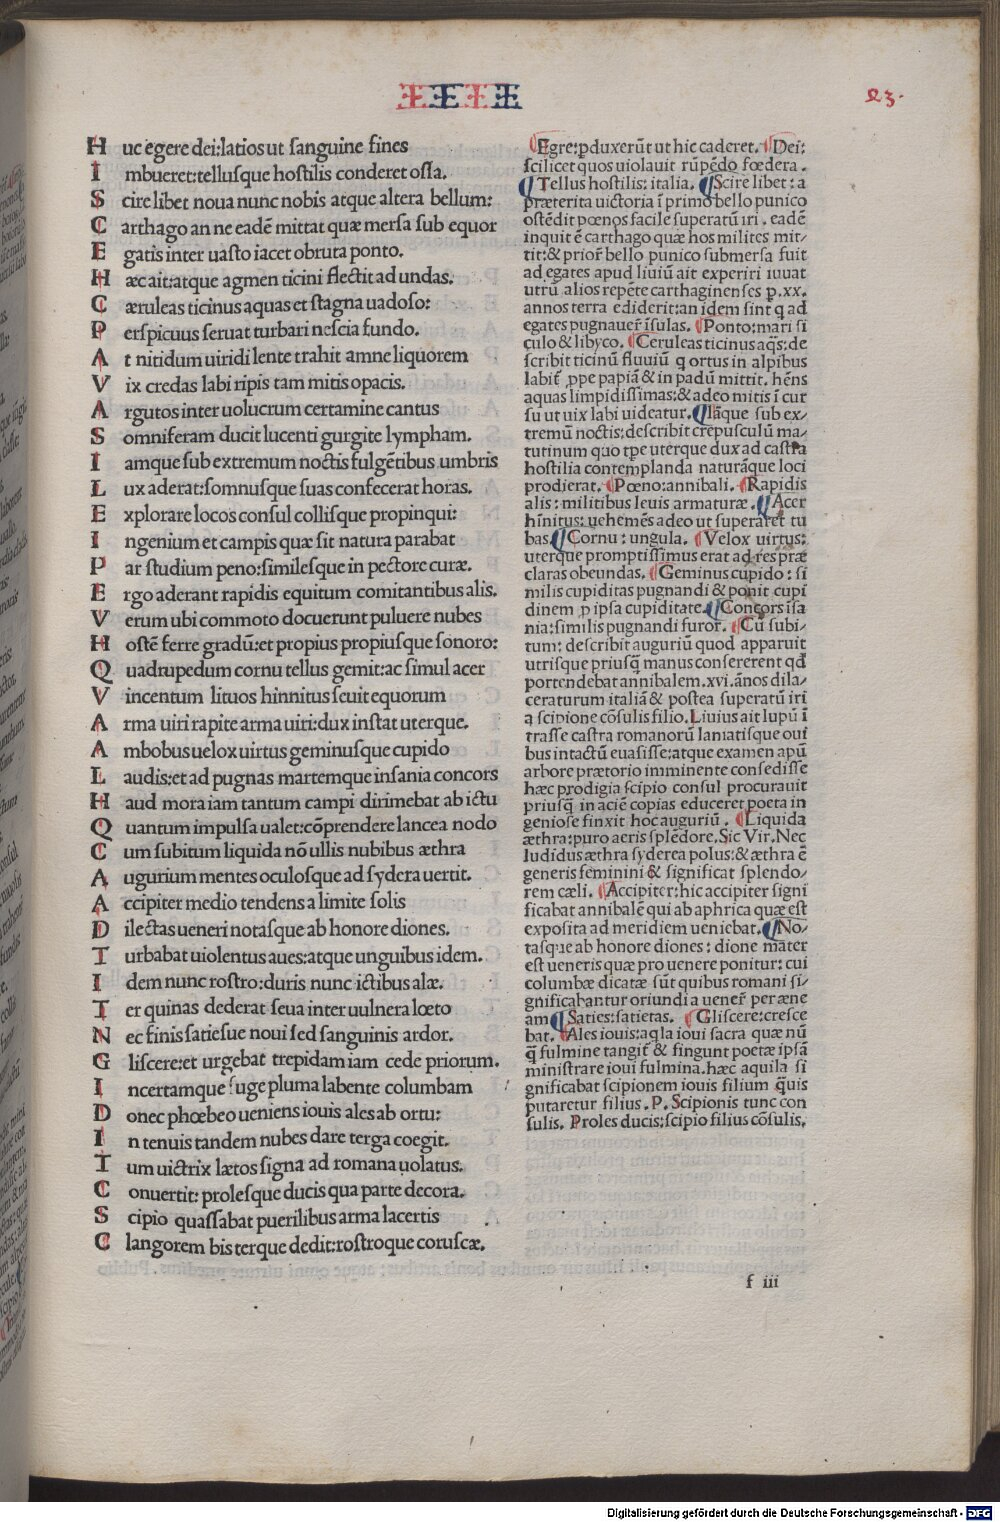 IIII
23.
H uc egere dei:latios ut sanguine fines
I mbueret:tellusque hostilis conderet ossa.
S cire libet noua nunc nobis atque altera bellum:
C arthago an ne eadē mittat quæ mersa sub equor
E gatis inter uasto iacet obruta ponto.
H æc ait:atque agmen ticini flectit ad undas.
C æruleas ticinus aquas et stagna uadoso:
P erspicuus seruat turbari nescia fundo.
A t nitidum uiridi lente trahit amne liquorem
V ix credas labi ripis tam mitis opacis.
A rgutos inter uolucrum certamine cantus
S omniferam ducit lucenti gurgite lympham.
I amque sub extremum noctis fulgētibus umbris
L ux aderat:somnusque suas confecerat horas.
E xplorare locos consul collisque propinqui:
I ngenium et campis quæ sit natura parabat
P ar studium peno:similesque in pectore curæ.
E rgo aderant rapidis equitum comitantibus alis.
V erum ubi commoto docuerunt puluere nubes
H ostē ferre gradū:et propius propiusque sonoro:
Q uadrupedum cornu tellus gemit:ac simul acer
V incentum lituos hinnitus seuit equorum
A rma uiri rapite arma uiri:dux instat uterque.
A mbobus uelox uirtus geminusque cupido
L audis:et ad pugnas martemque insania concors
H aud mora iam tantum campi dirimebat ab ictu
Q uantum impulsa ualet:cōprendere lancea nodo
C um subitum liquida nō ullis nubibus æthra
A ugurium mentes oculosque ad sydera uertit.
A ccipiter medio tendens a limite solis
D ilectas ueneri notasque ab honore diones.
T urbabat uiolentus aues:atque unguibus idem.
I dem nunc rostro:duris nunc ictibus alæ.
T er quinas dederat seua inter uulnera lœto
N ec finis satiesue noui sed sanguinis ardor.
G liscere:et urgebat trepidam iam cede priorum.
I ncertamque fuge pluma labente columbam
D onec phœbeo ueniens iouis ales ab ortu:
I n tenuis tandem nubes dare terga coegit.
T um uictrix lætos signa ad romana uolatus.
C onuertit: prolesque ducis qua parte decora.
S cipio quassabat puerilibus arma lacertis
C langorem bis terque dedit:rostroque coruscæ.
Egre:pduxerūt ut hic caderet. Dei:
scilicet quos uiolauit rūpēdo fœdera.
Tellus hostilis: italia. Scire libet: a
præterita uictoria ī primo bello punico
ostēdit pœnos facile superatū iri. eadē
inquit ē carthago quæ hos milites mit-
tit:& prior bello punico submersa fuit
ad egates apud liuiū ait experiri iuuat
utrū alios repēte carthaginenses p.xx.
annos terra ediderit:an idem sint q ad
egates pugnauer īsulas. Ponto:mari si
culo & libyco. Ceruleas ticinus aqs:de
scribit ticinū fluuiū q ortus in alpibus
labit ppe papiā & in padū mittit. hēns
aquas limpidissimas:& adeo mitis ī cur
su ut uix labi uideatur. Iāque sub ex-
tremū noctis:describit crepusculū ma-
tutinum quo tpe uterque dux ad castra
hostilia contemplanda naturāque loci
prodierat. Pœno:annibali. Rapidis
alis: militibus leuis armaturæ. Acer
hīnitus: uehemēs adeo ut superaret tu
bas. Cornu: ungula. Velox uirtus:
uterque promptissimus erat ad res præ
claras obeundas. Geminus cupido: si
milis cupiditas pugnandi & ponit cupi
dinem p ipsa cupiditate. Concors īsa
nia:similis pugnandi furor. Cū subi-
tum: describit auguriū quod apparuit
utrisque priusq̄ manus consererent qd
portendebat annibalem.xvi.ānos dila-
ceraturum italiā & postea superatū iri
a scipione cōsulis filio. Liuius ait lupū ī
trasse castra romanorū laniatisque oui
bus intactū euasisse:atque examen apū
arbore prætorio imminente consedisse
hæc prodigia scipio consul procurauit
priusq in aciē copias educeret poeta in
geniose finxit hoc auguriū. Liquida
æthra:puro aeris splēdore. Sic Vir. Nec
lucidus æthra syderea polus:& æthra ē
generis feminini & significat splendo-
rem cæli. Accipiter:hic accipiter signi
ficabat annibalē qui ab aphrica quæ est
exposita ad meridiem ueniebat. No-
tasque ab honore diones: dione mater
est ueneris quæ pro uenere ponitur: cui
columbæ dicatæ sūt quibus romani si-
gnificabantur oriundi a uener per æne
am Saties:satietas. Gliscere:cresce
bat. Ales iouis:aqla ioui sacra quæ nū
q̄ fulmine tangit & fingunt poetæ ipsā
ministrare ioui fulmina. hæc aquila si
gnificabat scipionem iouis filium q̄uis
putaretur filius. P. Scipionis tunc con
sulis. Proles ducis:scipio filius cōsulis.
f iii
Digitalisierung gefördert durch die Deutsche Forschungsgemeinschaft - DFG